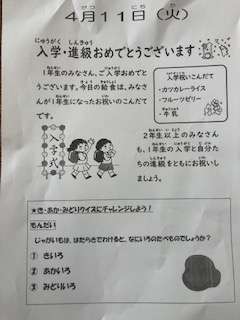 4月11日（火）
入学・進級おめでとうございます
1年生のみなさん、ご入学おめでと
うございます。今日の給食は、みなさ
んが1年生になったお祝いのこんだて
です。
入学祝いこんだて
・カツカレーライス
・フルーツゼリー
・牛乳
入学式
2年生以上のみなさ
んも、1年生の入学と自分た
ちの進級をともにお祝いし
ましょう。
★き・あか・みどりクイズにチャレンジしよう！
もんだい
じゃがいもは、はたらきでわけると、なにいろのたべものでしょうか？
① きいろ
② あかいろ
③ みどりいろ